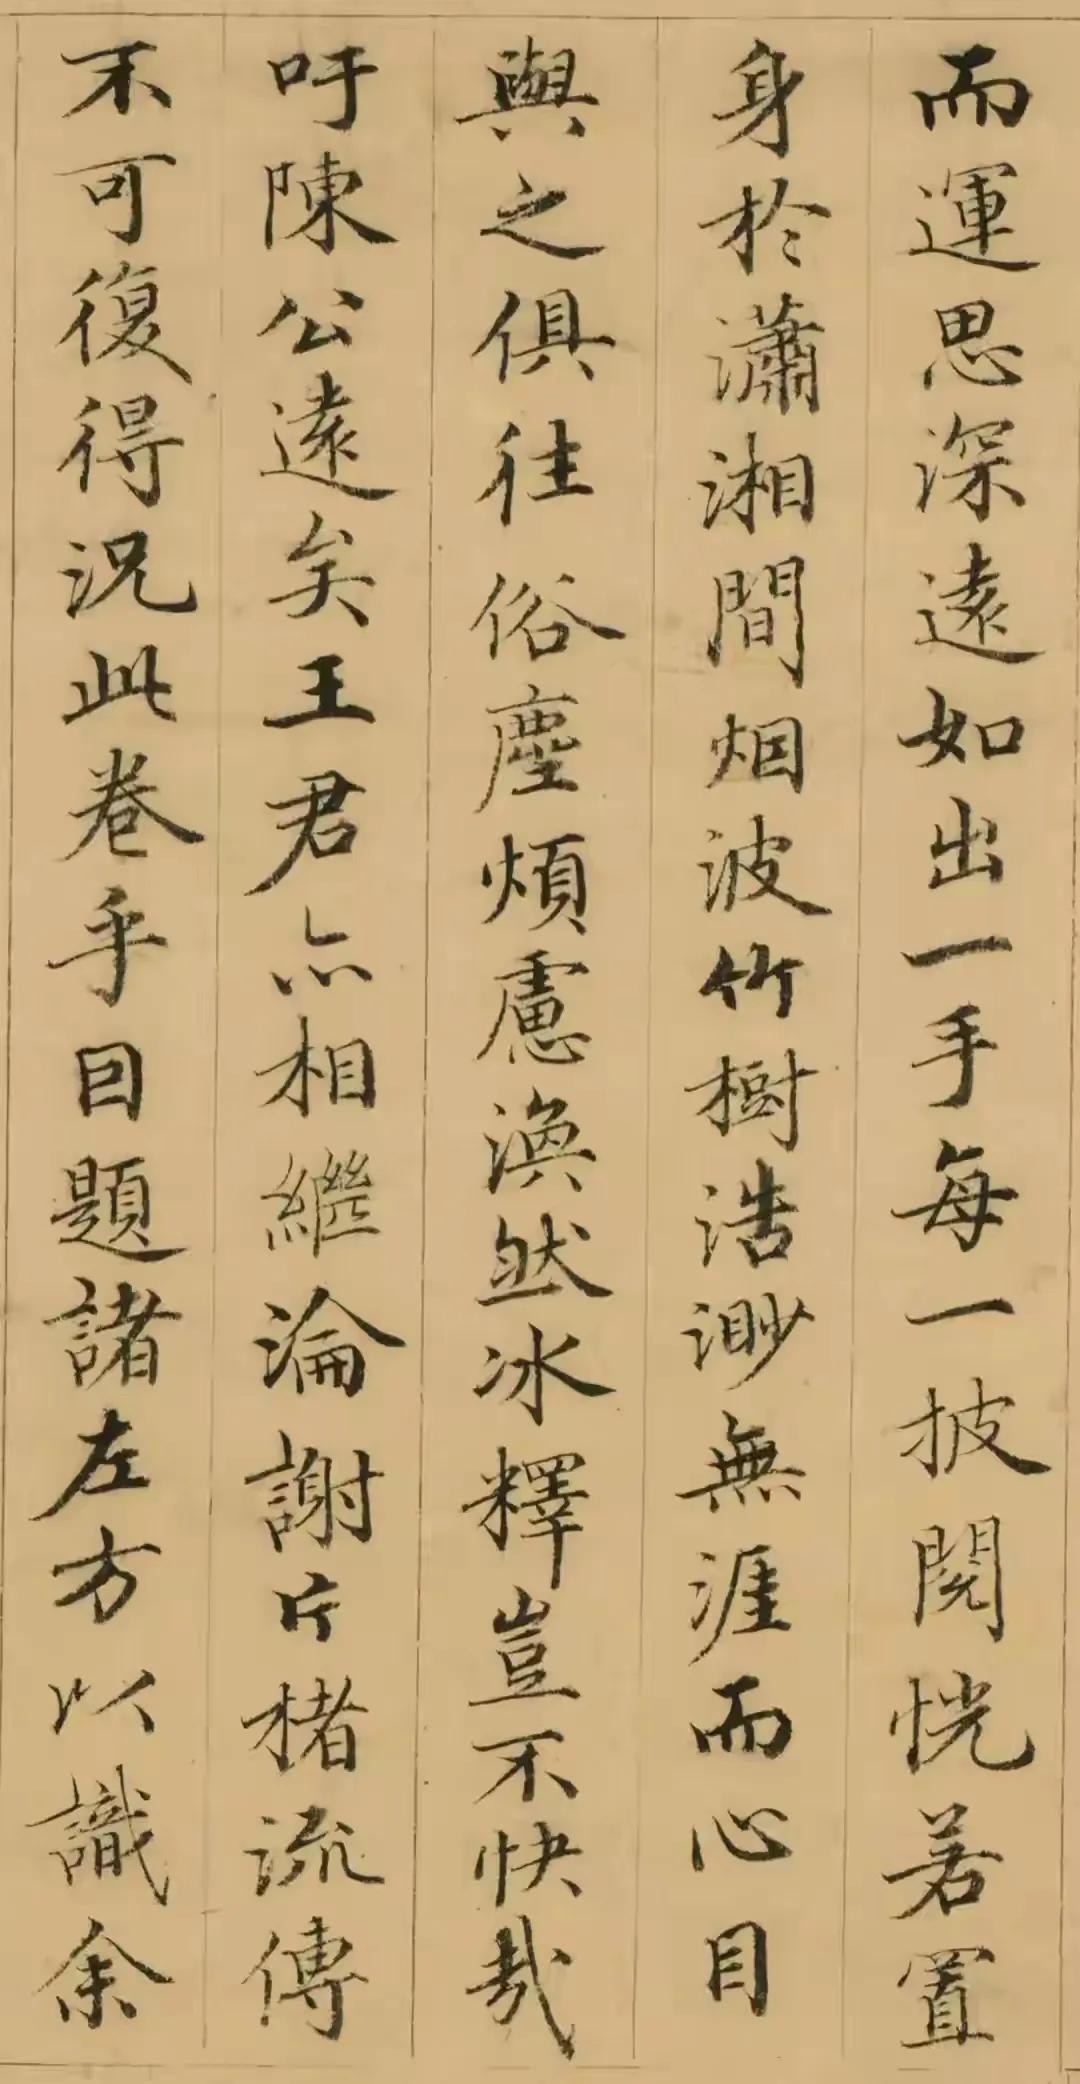 而運思深遠如出一手每一披閱恍若置
身於瀟湘間烟波竹樹浩渺無涯而心目
與之俱往俗塵煩慮渙然冰釋豈不快哉
吁陳公遠矣王君亦相繼淪謝片楮流傳
不可復得況此卷乎因題諸左方以識余